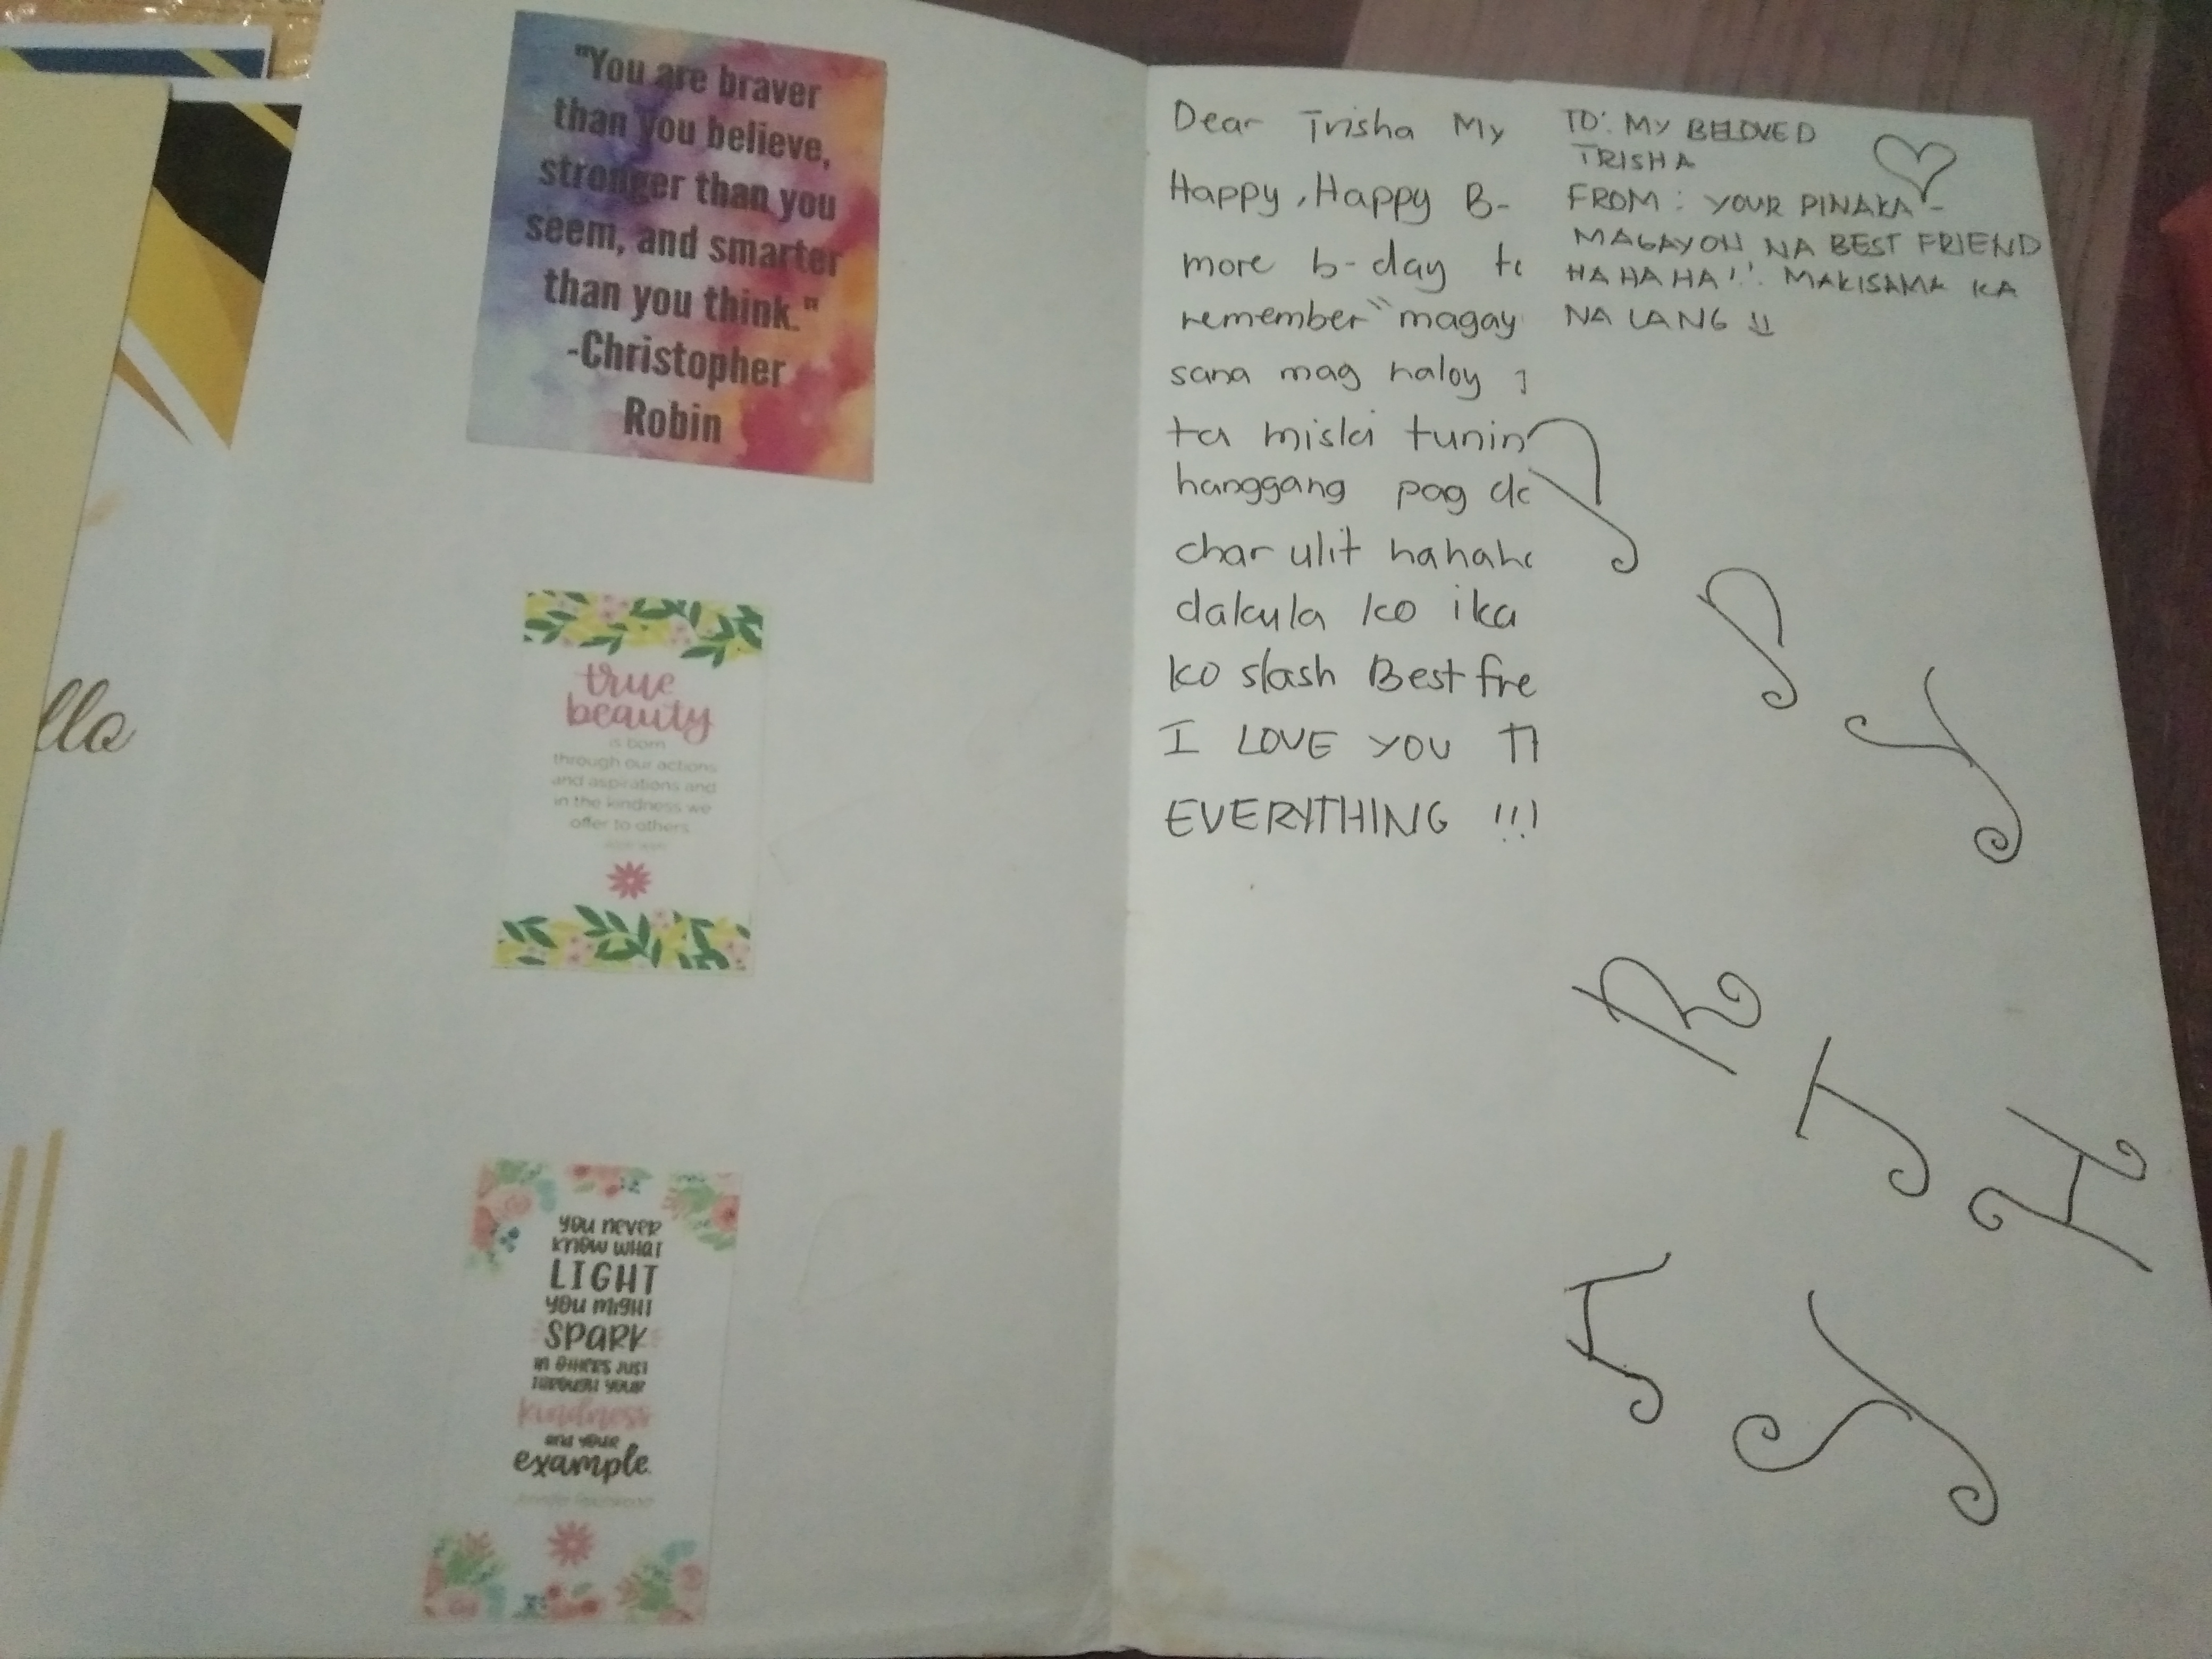 lla
"You are braver
than you believe,
stronger than you
seem, and smarter
than you think."
-Christopher
Robin
true
beauty
is born
through our actions
and aspirations and
in the kindness we
offer to others
you never
know what
LIGHT
you might
spark
in others just
through your
kindness
and your
example.
Dear Trisha My
Happy, Happy B-
more b-day
remember "magay
sana mag haloy
ta miski tunin
hanggang pag
char ulit
dakula ko ika
ko slash Best fre
I LOVE YOU
EVERYTHING !!!
TO: MY BELOVED
TRISHA
FROM: YOUR PINAKA-
MAGAYON NA BEST FRIEND
HAHAHA!! MAKISAMA KA
NA LANG